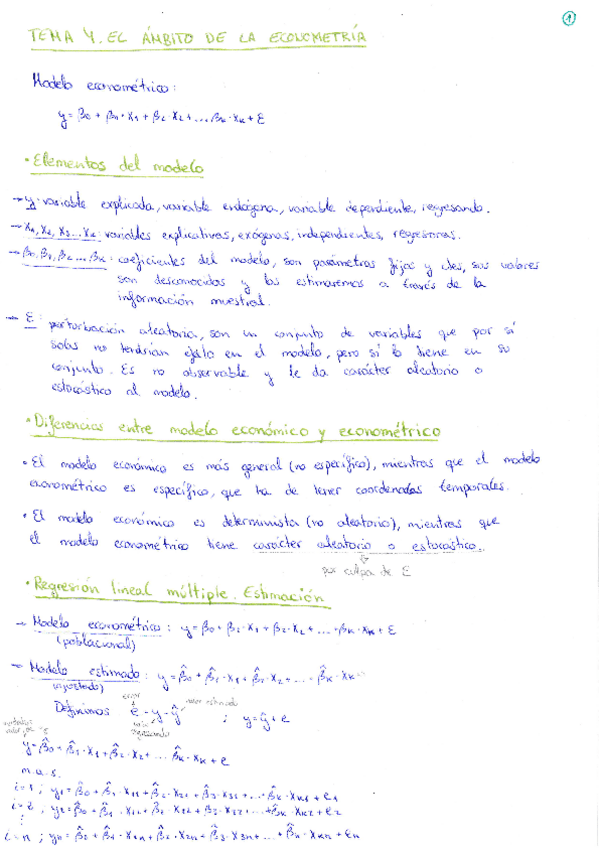 1
TEMA 4. EL ÁMBITO DE LA ECONOMETRÍA
Modelo econométrico:
y = β0 + β1·X1 + β2·X2 + ... βk·Xk + ε
· Elementos del modelo
→ y: variable explicada, variable endógena, variable dependiente, regresando.
→ X1, X2, X3...Xk: variables explicativas, exógenas, independientes, regresoras.
→ β0, β1, β2...βk: coeficientes del modelo, son parámetros fijos y sus valores
son desconocidos y los estimaremos a través de la
información muestral.
→ ε: perturbación aleatoria, son un conjunto de variables que por sí
solas no tendrían efecto en el modelo, pero sí lo tiene en su
conjunto. Es no observable y le da carácter aleatorio o
estocástico al modelo.
· Diferencias entre modelo económico y econométrico
· El modelo económico es más general (no específico), mientras que el modelo
econométrico es específico, que ha de tener coordenadas temporales.
· El modelo económico es determinista (no aleatorio), mientras que
el modelo econométrico tiene carácter aleatorio o estocástico.
por culpa de ε
· Regresión lineal múltiple. Estimación
→ Modelo econométrico: y = β0 + β1·X1 + β2·X2 + ... + βk·Xk + ε
(poblacional)
→ Modelo estimado: ŷ = β̂0 + β̂1·X1 + β̂2·X2 + ... β̂k·Xk
(ajustado)
error
valor estimado
Definimos e = y - ŷ ; y = ŷ + e
y = β̂0 + β̂1·X1 + β̂2·X2 + ... β̂k·Xk + e
m.a.s.
i=1; y1 = β̂0 + β̂1·X11 + β̂2·X21 + β̂3·X31 + ... + β̂k·Xk1 + e1
i=2; y2 = β̂0 + β̂1·X12 + β̂2·X22 + β̂3·X32 ... + β̂k·Xk2 + e2
⋮
i=n; yn = β̂0 + β̂1·X1n + β̂2·X2n + β̂3·X3n + ... + β̂k·Xkn + en